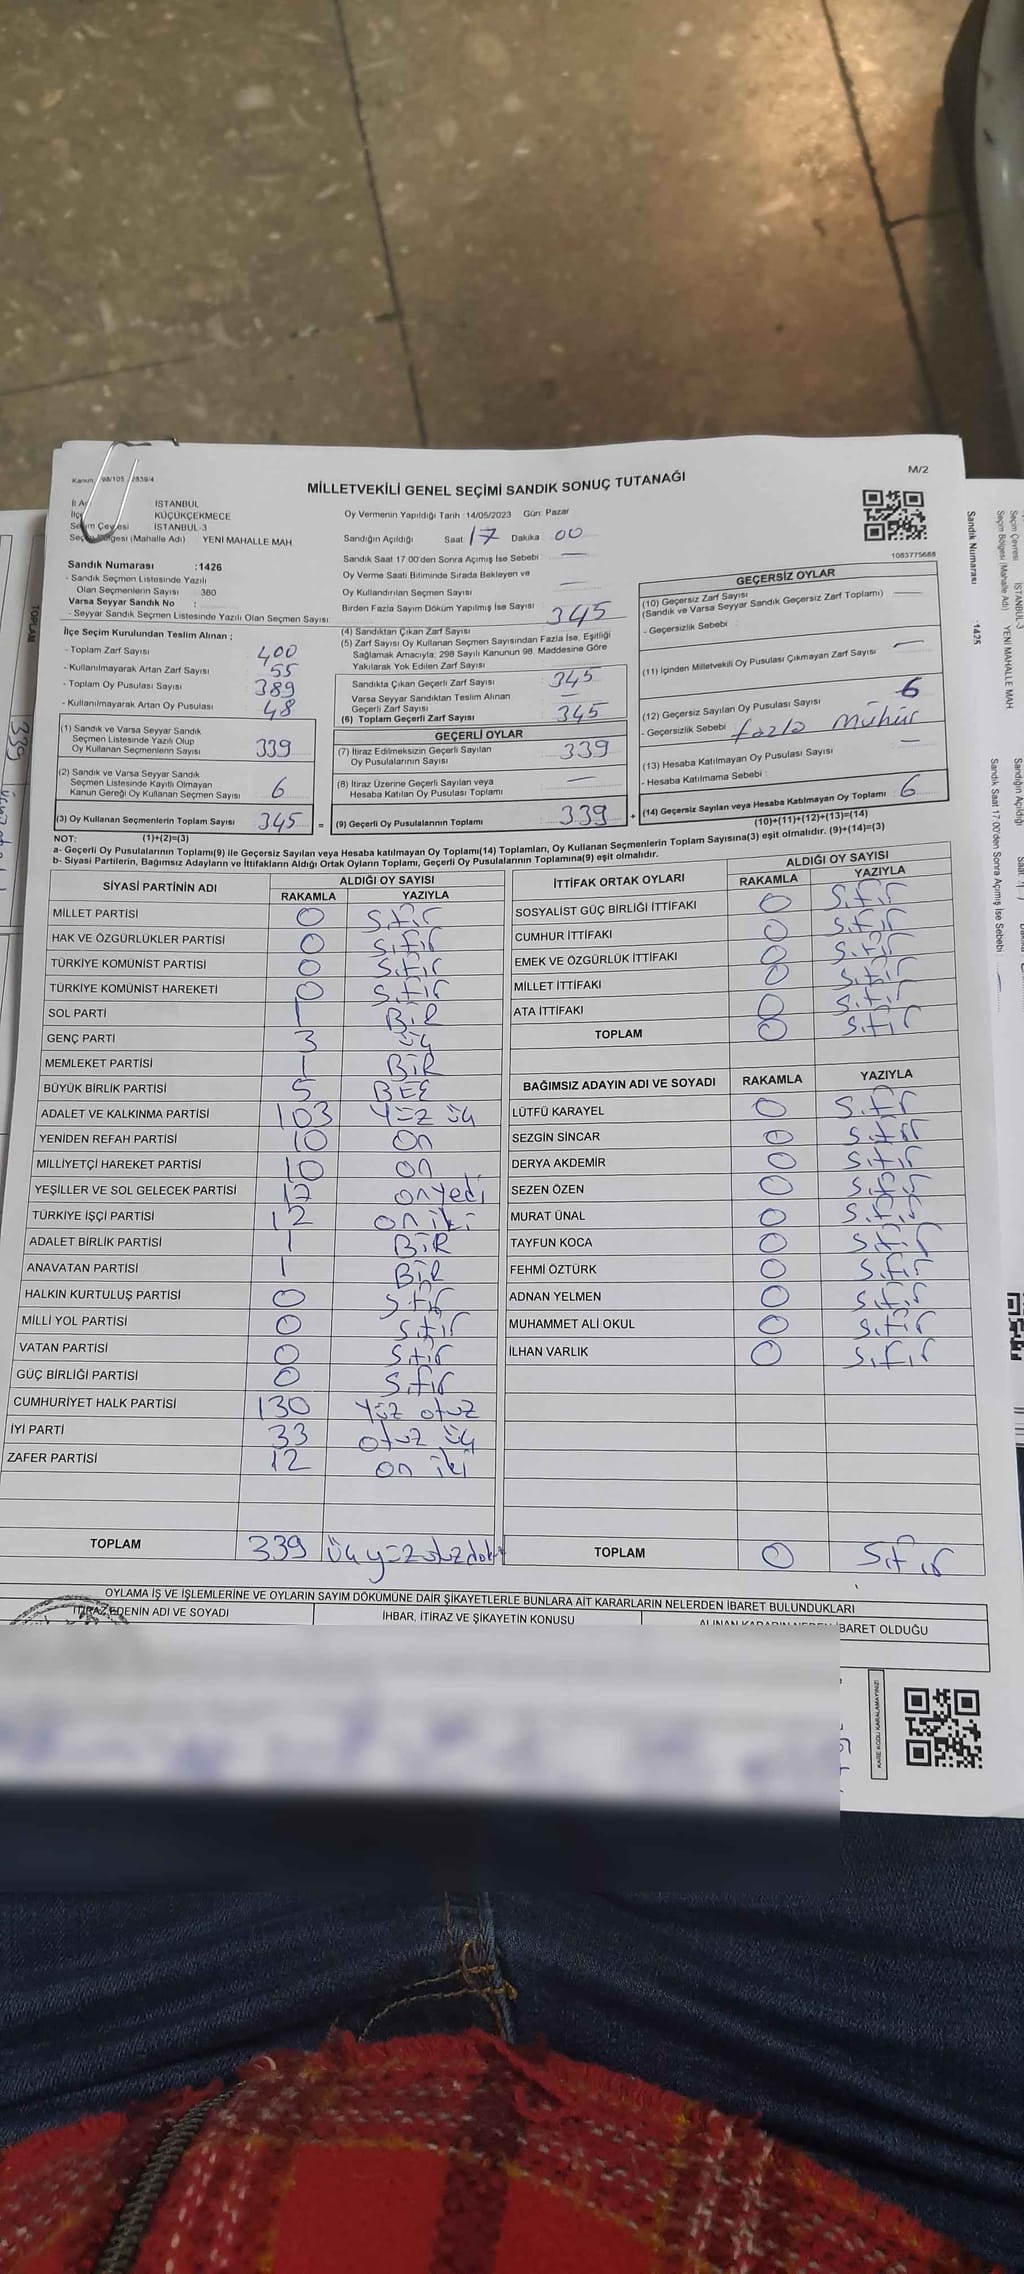 M/2
MİLLETVEKİLİ GENEL SEÇİMİ SANDIK SONUÇ TUTANAĞI
Kanun 98/105 2839/4
İSTANBUL
KÜÇÜKÇEKMECE
İSTANBUL-3
Bölgesi (Mahalle Adı) YENİ MAHALLE MAH.
Oy Vermenin Yapıldığı Tarih :14/05/2023 Gün: Pazar
Sandığın Açıldığı Saat 17 Dakika 00
Sandık Saat 17:00'den Sonra Açılmış İse Sebebi : —
Oy Verme Saati Bitiminde Sırada Bekleyen ve
Oy Kullandırılan Seçmen Sayısı —
Birden Fazla Sayım Döküm Yapılmış İse Sayısı
1083775688
Sandık Numarası :1426
- Sandık Seçmen Listesinde Yazılı
Olan Seçmenlerin Sayısı : 380
Varsa Seyyar Sandık No :
- Seyyar Sandık Seçmen Listesinde Yazılı Olan Seçmen Sayısı
İlçe Seçim Kurulundan Teslim Alınan ;
- Toplam Zarf Sayısı 400
- Kullanılmayarak Artan Zarf Sayısı 55
- Toplam Oy Pusulası Sayısı 389
- Kullanılmayarak Artan Oy Pusulası 48
(1) Sandık ve Varsa Seyyar Sandık
Seçmen Listesinde Yazılı Olup
Oy Kullanan Seçmenlerin Sayısı 339
(2) Sandık ve Varsa Seyyar Sandık
Seçmen Listesinde Kayıtlı Olmayan
Kanun Gereği Oy Kullanan Seçmen Sayısı 6
(3) Oy Kullanan Seçmenlerin Toplam Sayısı 345 =
(4) Sandıktan Çıkan Zarf Sayısı 345
(5) Zarf Sayısı Oy Kullanan Seçmen Sayısından Fazla İse, Eşitliği
Sağlamak Amacıyla; 298 Sayılı Kanunun 98. Maddesine Göre
Yakılarak Yok Edilen Zarf Sayısı —
Sandıkta Çıkan Geçerli Zarf Sayısı 345
Varsa Seyyar Sandıktan Teslim Alınan
Geçerli Zarf Sayısı —
(6) Toplam Geçerli Zarf Sayısı 345
GEÇERLİ OYLAR
(7) İtiraz Edilmeksizin Geçerli Sayılan
Oy Pusulalarının Sayısı 339
(8) İtiraz Üzerine Geçerli Sayılan veya
Hesaba Katılan Oy Pusulası Toplamı —
(9) Geçerli Oy Pusulalarının Toplamı 339 +
GEÇERSİZ OYLAR
(10) Geçersiz Zarf Sayısı
(Sandık ve Varsa Seyyar Sandık Geçersiz Zarf Toplamı) —
- Geçersizlik Sebebi :
(11) İçinden Milletvekili Oy Pusulası Çıkmayan Zarf Sayısı —
(12) Geçersiz Sayılan Oy Pusulası Sayısı 6
- Geçersizlik Sebebi : fazla Mühür
(13) Hesaba Katılmayan Oy Pusulası Sayısı —
- Hesaba Katılmama Sebebi :
(14) Geçersiz Sayılan veya Hesaba Katılmayan Oy Toplamı : 6
(10)+(11)+(12)+(13)=(14)
NOT: (1)+(2)=(3)
a- Geçerli Oy Pusulalarının Toplamı(9) ile Geçersiz Sayılan veya Hesaba katılmayan Oy Toplamı(14) Toplamları, Oy Kullanan Seçmenlerin Toplam Sayısına(3) eşit olmalıdır. (9)+(14)=(3)
b- Siyasi Partilerin, Bağımsız Adayların ve İttifakların Aldığı Ortak Oyların Toplamı, Geçerli Oy Pusulalarının Toplamına(9) eşit olmalıdır.
SİYASİ PARTİNİN ADI ALDIĞI OY SAYISI
RAKAMLA YAZIYLA
MİLLET PARTİSİ 0 Sıfır
HAK VE ÖZGÜRLÜKLER PARTİSİ 0 Sıfır
TÜRKİYE KOMÜNİST PARTİSİ 0 Sıfır
TÜRKİYE KOMÜNİST HAREKETİ 0 Sıfır
SOL PARTİ 1 BİR
GENÇ PARTİ 3 üç
MEMLEKET PARTİSİ 1 BİR
BÜYÜK BİRLİK PARTİSİ 5 BEŞ
ADALET VE KALKINMA PARTİSİ 103 Yüz üç
YENİDEN REFAH PARTİSİ 10 On
MİLLİYETÇİ HAREKET PARTİSİ 10 on
YEŞİLLER VE SOL GELECEK PARTİSİ 17 onyedi
TÜRKİYE İŞÇİ PARTİSİ 12 on iki
ADALET BİRLİK PARTİSİ 1 BİR
ANAVATAN PARTİSİ 1 BİR
HALKIN KURTULUŞ PARTİSİ 0 Sıfır
MİLLİ YOL PARTİSİ 0 Sıfır
VATAN PARTİSİ 0 Sıfır
GÜÇ BİRLİĞİ PARTİSİ 0 Sıfır
CUMHURİYET HALK PARTİSİ 130 Yüz otuz
İYİ PARTİ 33 otuz üç
ZAFER PARTİSİ 12 on iki
TOPLAM 339 üçyüzotuzdok
İTTİFAK ORTAK OYLARI ALDIĞI OY SAYISI
RAKAMLA YAZIYLA
SOSYALİST GÜÇ BİRLİĞİ İTTİFAKI 0 Sıfır
CUMHUR İTTİFAKI 0 Sıfır
EMEK VE ÖZGÜRLÜK İTTİFAKI 0 Sıfır
MİLLET İTTİFAKI 0 Sıfır
ATA İTTİFAKI 0 Sıfır
TOPLAM 0 Sıfır
BAĞIMSIZ ADAYIN ADI VE SOYADI RAKAMLA YAZIYLA
LÜTFÜ KARAYEL 0 Sıfır
SEZGİN SİNCAR 0 Sıfır
DERYA AKDEMİR 0 Sıfır
SEZEN ÖZEN 0 Sıfır
MURAT ÜNAL 0 Sıfır
TAYFUN KOCA 0 Sıfır
FEHMİ ÖZTÜRK 0 Sıfır
ADNAN YELMEN 0 Sıfır
MUHAMMET ALİ OKUL 0 Sıfır
İLHAN VARLIK 0 Sıfır
TOPLAM 0 Sıfır
OYLAMA İŞ VE İŞLEMLERİNE VE OYLARIN SAYIM DÖKÜMÜNE DAİR ŞİKAYETLERLE BUNLARA AİT KARARLARIN NELERDEN İBARET BULUNDUKLARI
İTİRAZ EDENİN ADI VE SOYADI İHBAR, İTİRAZ VE ŞİKAYETİN KONUSU ALINAN KARARIN NEDEN İBARET OLDUĞU
KARE KODU KARALAMAYINIZ!
TOPLAM
339
Sandık Numarası :1425
Seçim Çevresi İSTANBUL-3
Seçim Bölgesi (Mahalle Adı) YENİ MAHALLE MAH
Sandığın Açıldığı Saat
Sandık Saat 17:00'den Sonra Açılmış İse Sebebi :